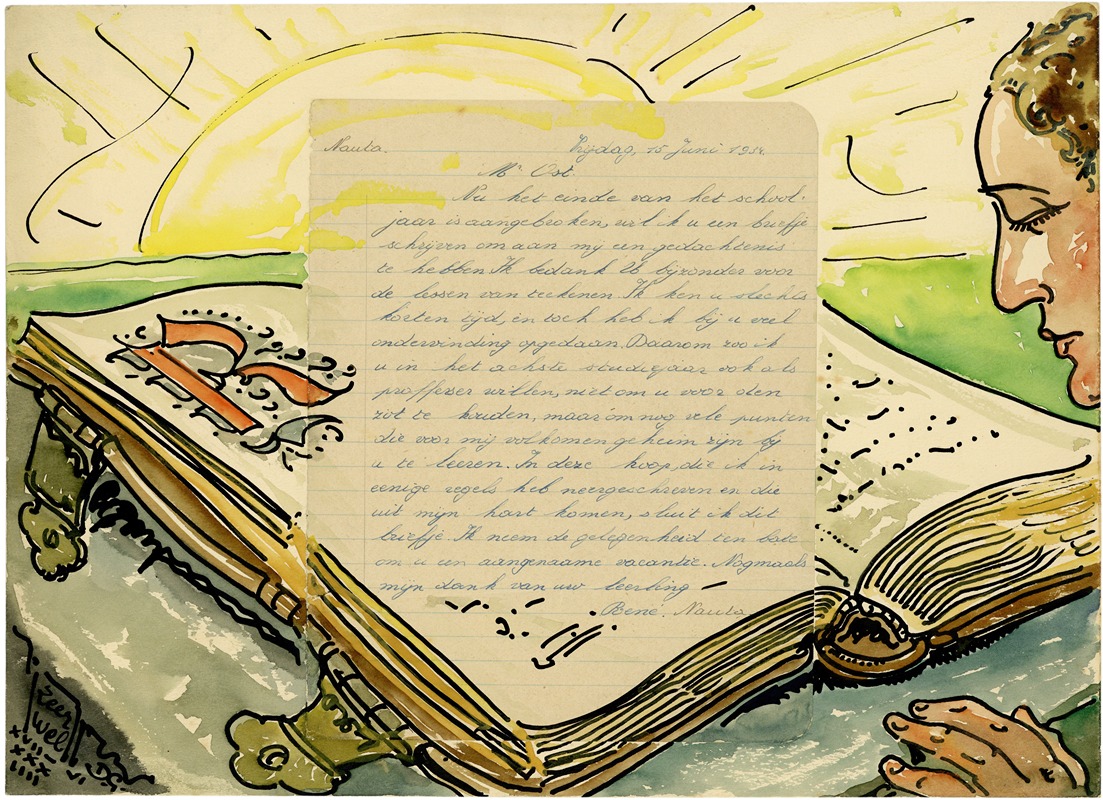 Nauta. Vrijdag, 15 Juni 1934.
Mr Ost.
Nu het einde van het school-
jaar is aangebroken, wil ik u een briefje
schrijven om aan mij een gedachtenis
te hebben. Ik bedank U bijzonder voor
de lessen van teekenen. Ik ken u slechts
korten tijd, en toch heb ik bij u veel
ondervinding opgedaan. Daarom zou ik
u in het achste studiejaar ook als
proffesser willen, niet om u voor den
zot te houden, maar om nog vele punten
die voor mij volkomen geheim zijn bij
u te leeren. In deze hoop, die ik in
eenige regels heb neergeschreven en die
uit mijn hart komen, sluit ik dit
briefje. Ik neem de gelegenheid ten bate
om u een aangename vacantie. Nogmaals
mijn dank van uw leerling —
René Nauta
Zeer
wel